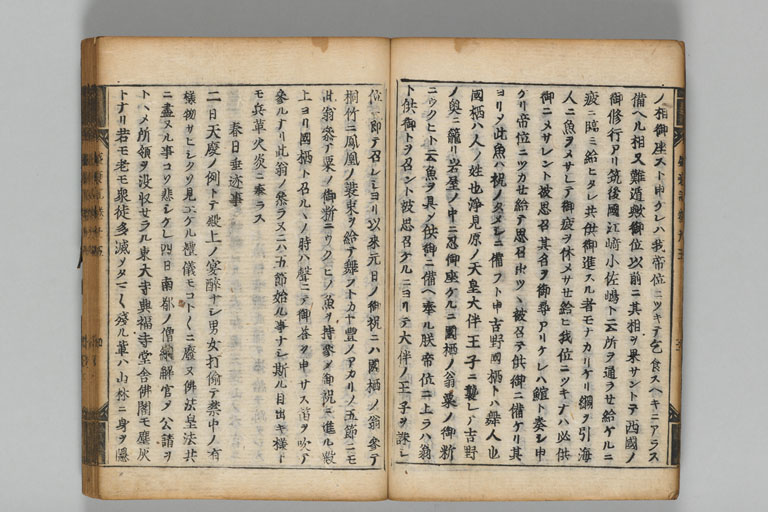 ノ相御座スト申ケレハ我帝位ニツキテ乞食スヘキニアラス
備ヘル相又難遁歟御位以前ニ其相ヲ果サントテ西國ノ
御修行アリ筑後國江﨑小佐嶋ト云所ヲ通ラセ給ケルニ
疲ニ臨ミ給ヒタレ共供御進スル者モナカリケリ網ヲ引海
人ニ魚ヲメサレテ御疲ヲ休メサセ給ヒ我位ニツキナハ必供
御ニメサレント被思召其名ヲ御尋アリケレハ䱱ト奏シ申
ケリ帝位ニツカセ給テ思召出ツヽ被召テ供御ニ備ケリ其
ヨリ〆此魚ハ祝ノスメシニ備フト申吉野國栖トハ舞人也
國栖ハ人ノ姓也浄見原ノ天皇大伴王子ニ襲レテ吉野
ノ奥ニ籠リ岩屋ノ中ニ忍御座ケルニ國栖ノ翁粟ノ御料
ニウクヒト云魚ヲ具シ供御ニ備ヘ奉ル朕帝位ニ上ラハ翁
ト供御トヲ召ント被思召ケルニヨリテ大伴ノ王子ヲ誅シ
位ニ即テ召レシヨリ以來元日ノ御祝ニハ國栖ノ翁参テ
桐竹ニ鳳凰ノ装束ヲ給テ舞フトカヤ豊ノアカリノ五節ニモ
此翁参テ粟ノ御料ニウクヒノ魚ヲ持参〆御祝ニ進ル殿
上ヨリ國栖ト召ルヽノ時ハ聲ニテ御答ヲ申サス笛ヲ吹テ
参ルナリ此翁ノ参ラヌニハ五節始ル事ナシ斯ル目出キ様ト
モ兵革火災ニ奉ラス
春日垂迹事
二日天慶ノ例トテ殿上ノ宴酔ナシ男女打偷テ禁中ノ有
様物サヒシクソ見エケル禮儀モコトくニ廢ヌ佛法皇法共
ニ盡ヌル事コソ悲シケレ四日南都ノ僧綱解官〆公請ヲ
トヽメ所領ヲ没収セラル東大寺興福寺堂舎佛閣モ塵灰
トナリ若モ老モ衆徒多滅ソタマく残ル輩ハ山林ニ身ヲ隠